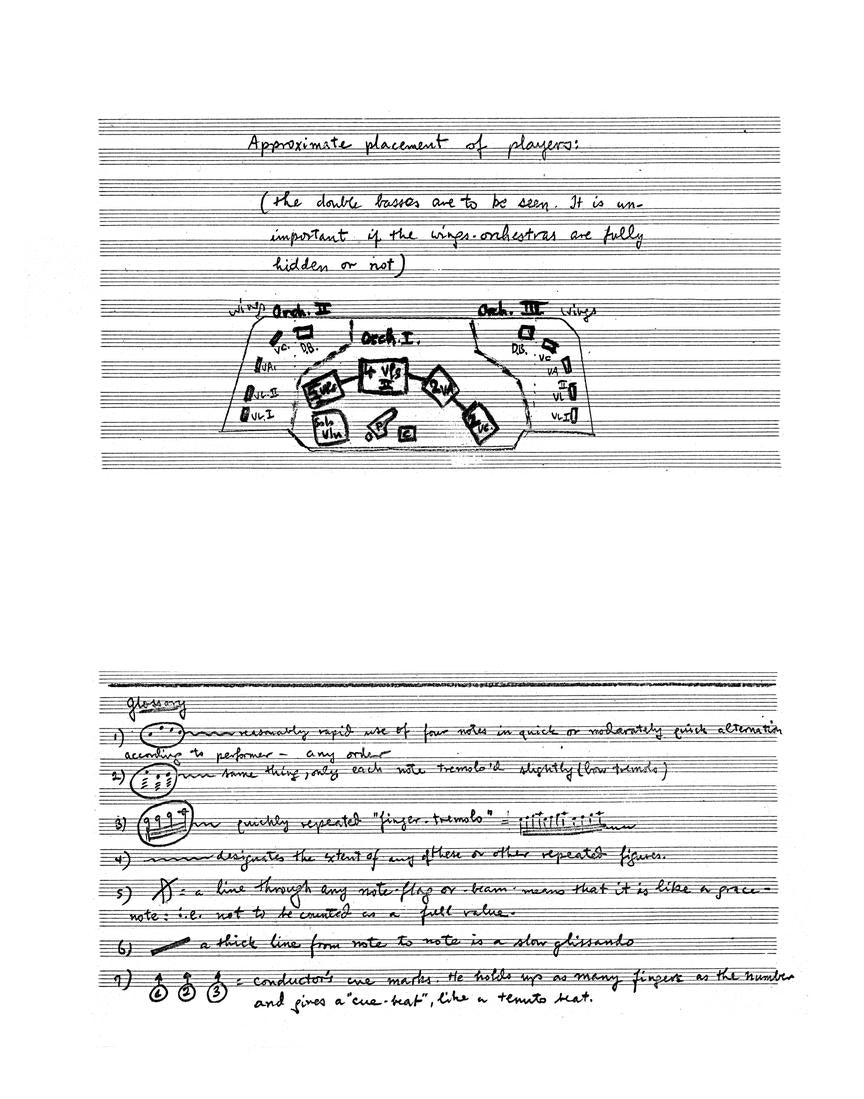 Approximate placement of players:
(the double basses are to be seen. It is un-
important if the wings-orchestras are fully
hidden or not)
wings Orch. II
Orch. III wings
Orch. I.
VC. D.B.
D.B. VC
VA.
VA
VL. II
II VL
VL. I
VL I
5 VLs
4 VLs II
2 VA
2 VC.
Solo Vln
P
C
Glossary
1) reasonably rapid use of four notes in quick or moderately quick alternation
according to performer – any order
2) same thing, only each note tremolo'd slightly (bow tremolo)
3) quickly repeated "finger-tremolo" =
4) designates the extent of any of these or other repeated figures.
5) = a line through any note-flag or -beam means that it is like a grace-
note: i.e. not to be counted as a full value.
6) a thick line from note to note is a slow glissando
7) 1 2 3 = conductor's cue marks. He holds up as many fingers as the number
and gives a "cue-beat", like a tenuto beat.